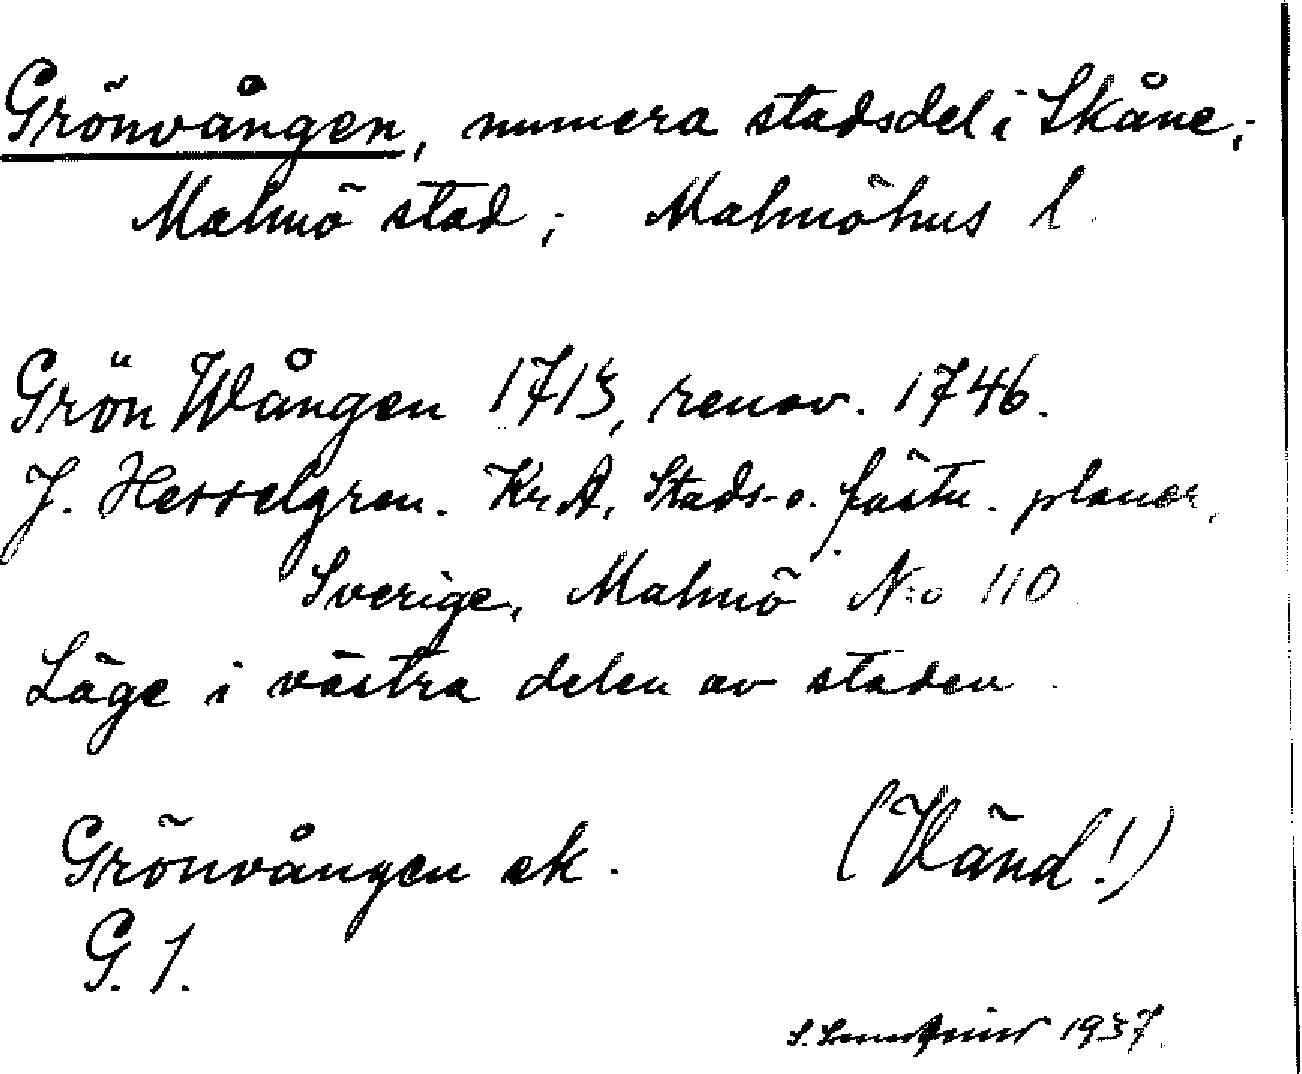 Grönvången, numera stadsdel i Skåne;
Malmö stad; Malmöhus l.
Grön Wången 1713, renov. 1746.
J. Hesselgren. Kr.A. Stads- o. fästn. planer,
Sverige, Malmö N:o 110
Läge i västra delen av staden.
Grönvången ek.
(Vänd!)
G. 1.
1937.